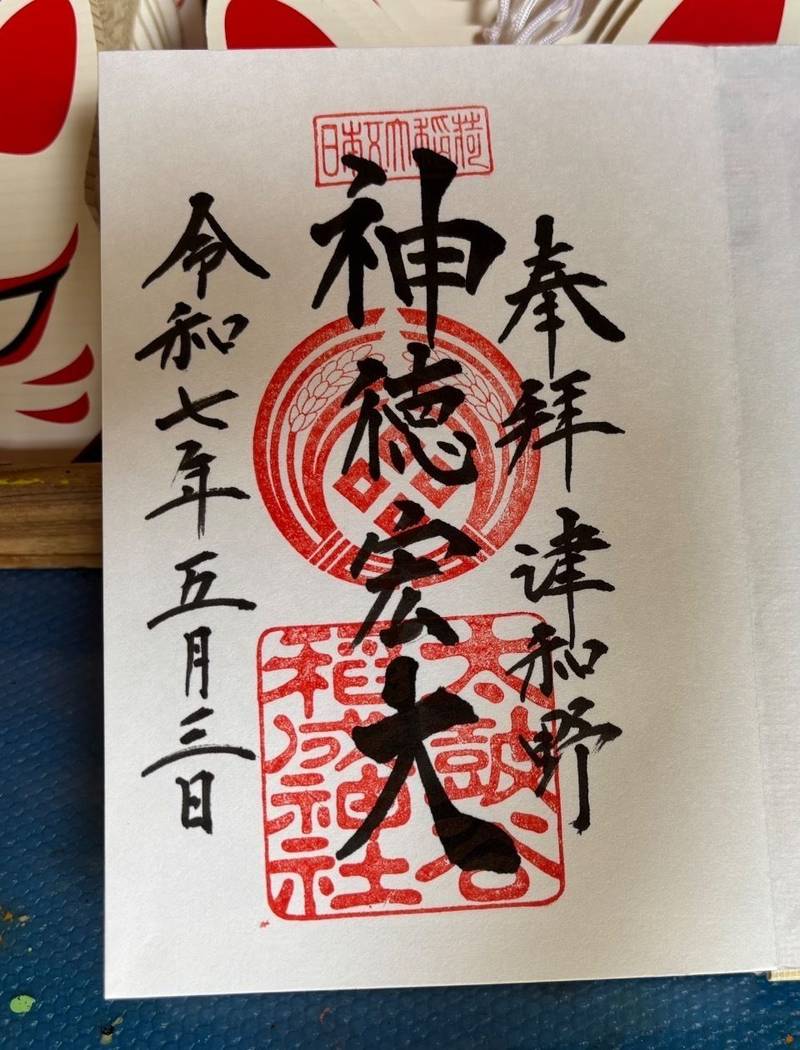 奉拝 津和野
日本五大稲荷
神徳宏大
太皷谷
稲成神社
令和七年五月三日